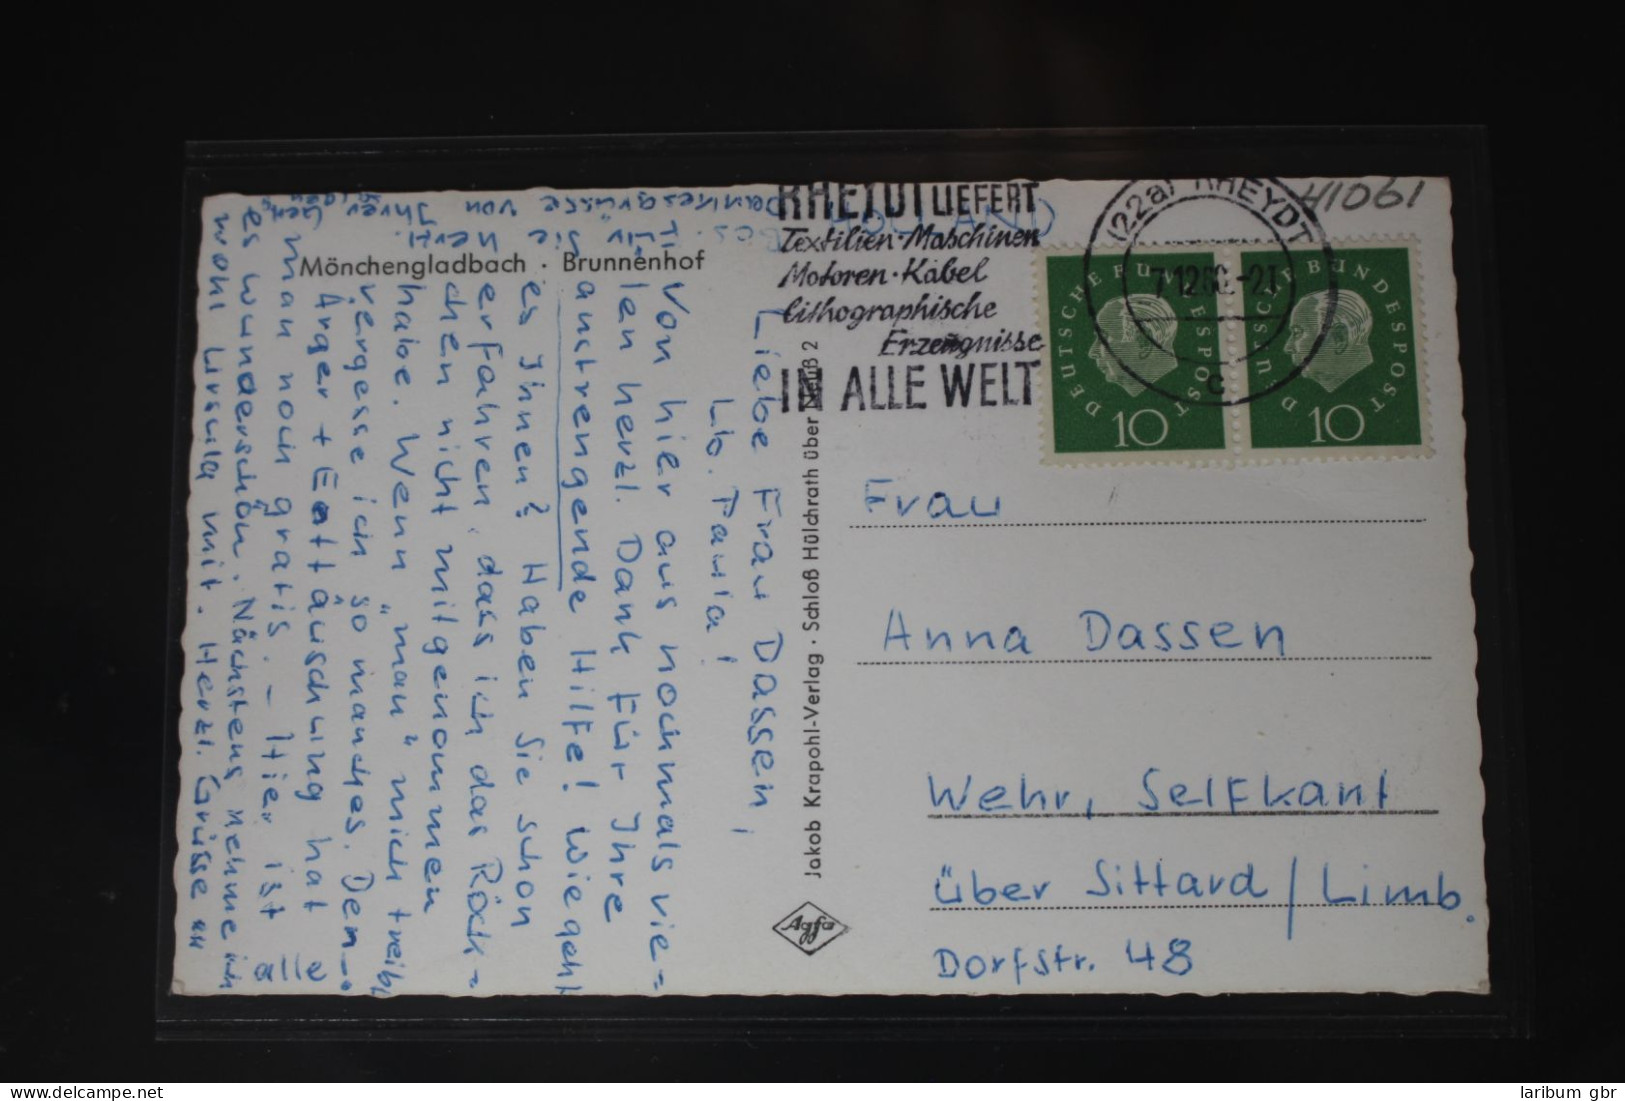 Mönchengladbach · Brunnenhof
Liebe Frau Dassen,
Lb. Paula!
Von hier aus nochmals vie=
len herzl. Dank für Ihre
anstrengende Hilfe! Wie geht
es Ihnen? Haben Sie schon
erfahren, dass ich das Röck=
chen nicht mitgenommen
habe. Wenn "man" mich treibt
vergesse ich so manches. Den
Ärger + Enttäuschung hat
man noch gratis. – Hier ist
es wunderschön. Nächstens nehme ich
wohl Ursula mit. Herzl. Grüsse an
alle
Jakob Krapohl-Verlag · Schloß Hülchrath über Neuß 2
Agfa
HOLLAND
RHEYDT LIEFERT
Textilien · Maschinen
Motoren · Kabel
Lithographische
Erzeugnisse
IN ALLE WELT
(22a) RHEYDT
7.12.60.-21
c
H1061
DEUTSCHE BUNDESPOST
10
DEUTSCHE BUNDESPOST
10
Frau
Anna Dassen
Wehr, Selfkant
über Sittard / Limb.
Dorfstr. 48
laribum gbr